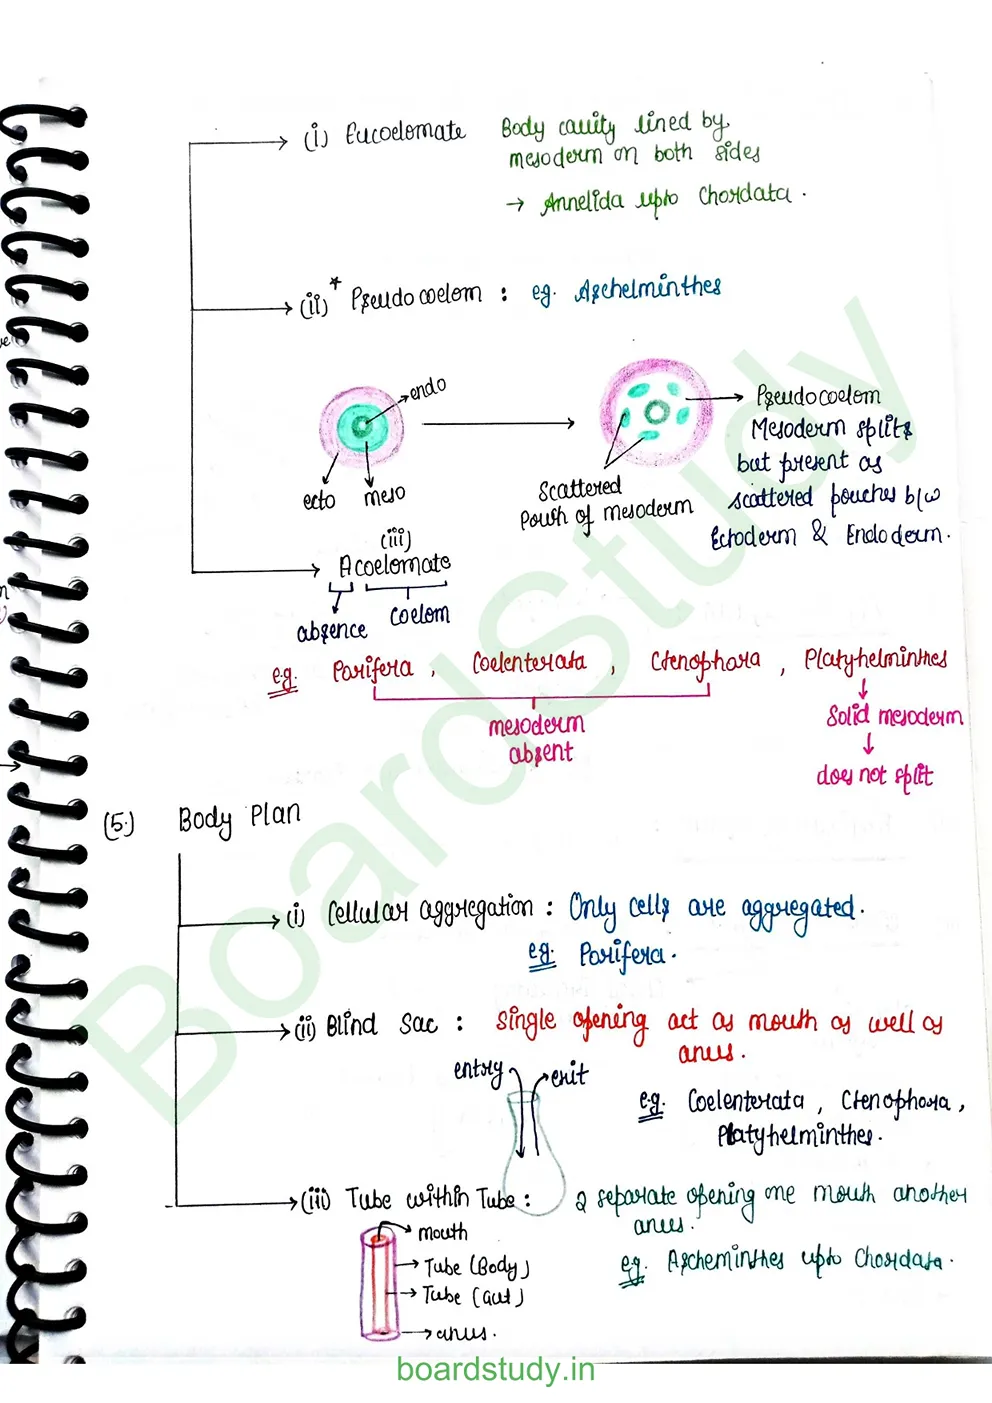 (i) Eucoelomate Body cavity lined by
mesoderm on both sides
→ Annelida upto Chordata.
(ii)* Pseudocoelom : eg. Aschelminthes
endo
ecto meso
Scattered
Pouch of mesoderm
Pseudocoelom
Mesoderm splits
but present as
scattered pouches b/w
Ectoderm & Endoderm.
(iii)
Acoelomate
absence coelom
e.g. Porifera , Coelenterata , Ctenophora , Platyhelminthes
mesoderm
absent
Solid mesoderm
↓
does not split
(5.) Body Plan
(i) Cellular aggregation : Only cells are aggregated.
eg. Porifera.
(ii) Blind Sac : Single opening act as mouth as well as
anus.
entry exit
e.g. Coelenterata , Ctenophora ,
Platyhelminthes.
(iii) Tube within Tube : 2 separate opening one mouth another
anus.
eg. Ascheminthes upto Chordata.
mouth
Tube (Body)
Tube (Gut)
anus.
BoardStudy
boardstudy.in